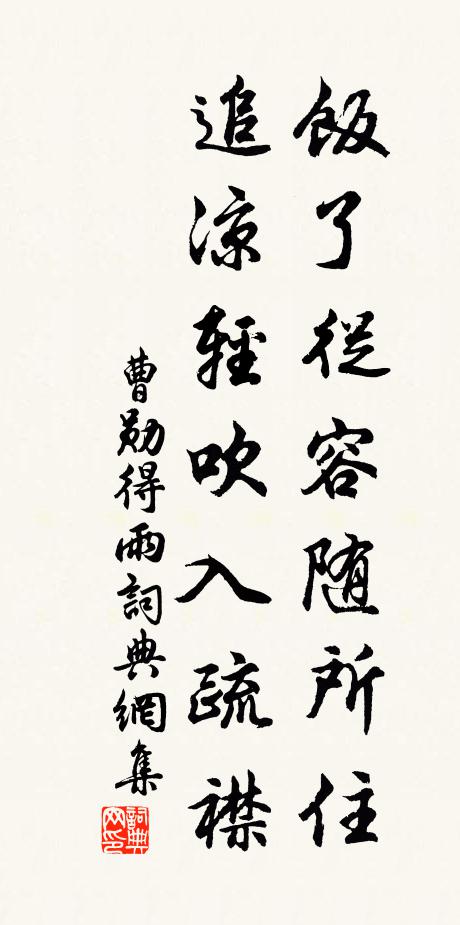 飯了從容随所住
追涼輕吹入疏襟
曹勛得雨詞典網集
詞典网印